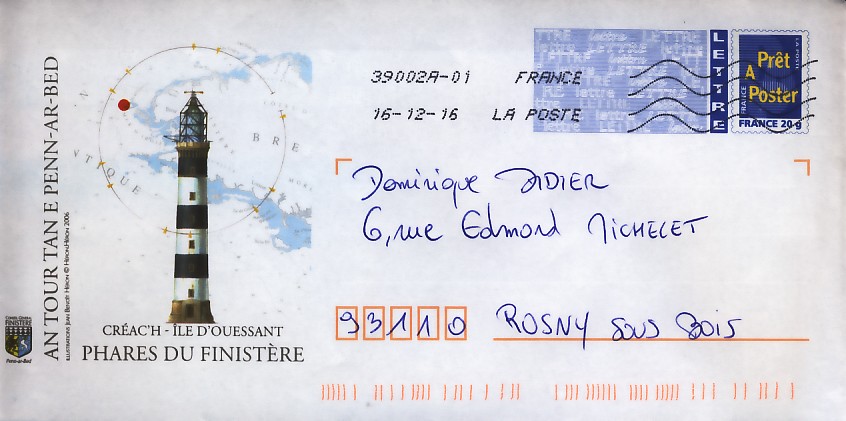 AN TOUR TAN E PENN-AR-BED
ILLUSTRATIONS JEAN BENOÎT HÉRON © HÉRON.HÉRON 2006
CONSEIL GÉNÉRAL
FINISTÈRE
Penn-ar-Bed
BRE
TIQUE
CRÉAC'H - ÎLE D'OUESSANT
PHARES DU FINISTÈRE
39002A-01 FRANCE
16-12-16 LA POSTE
LETTRE
LA POSTE
Prêt
A
Poster
FRANCE
FRANCE 20 g
Dominique DIDIER
6, rue Edmond MICHELET
93110 ROSNY SOUS BOIS